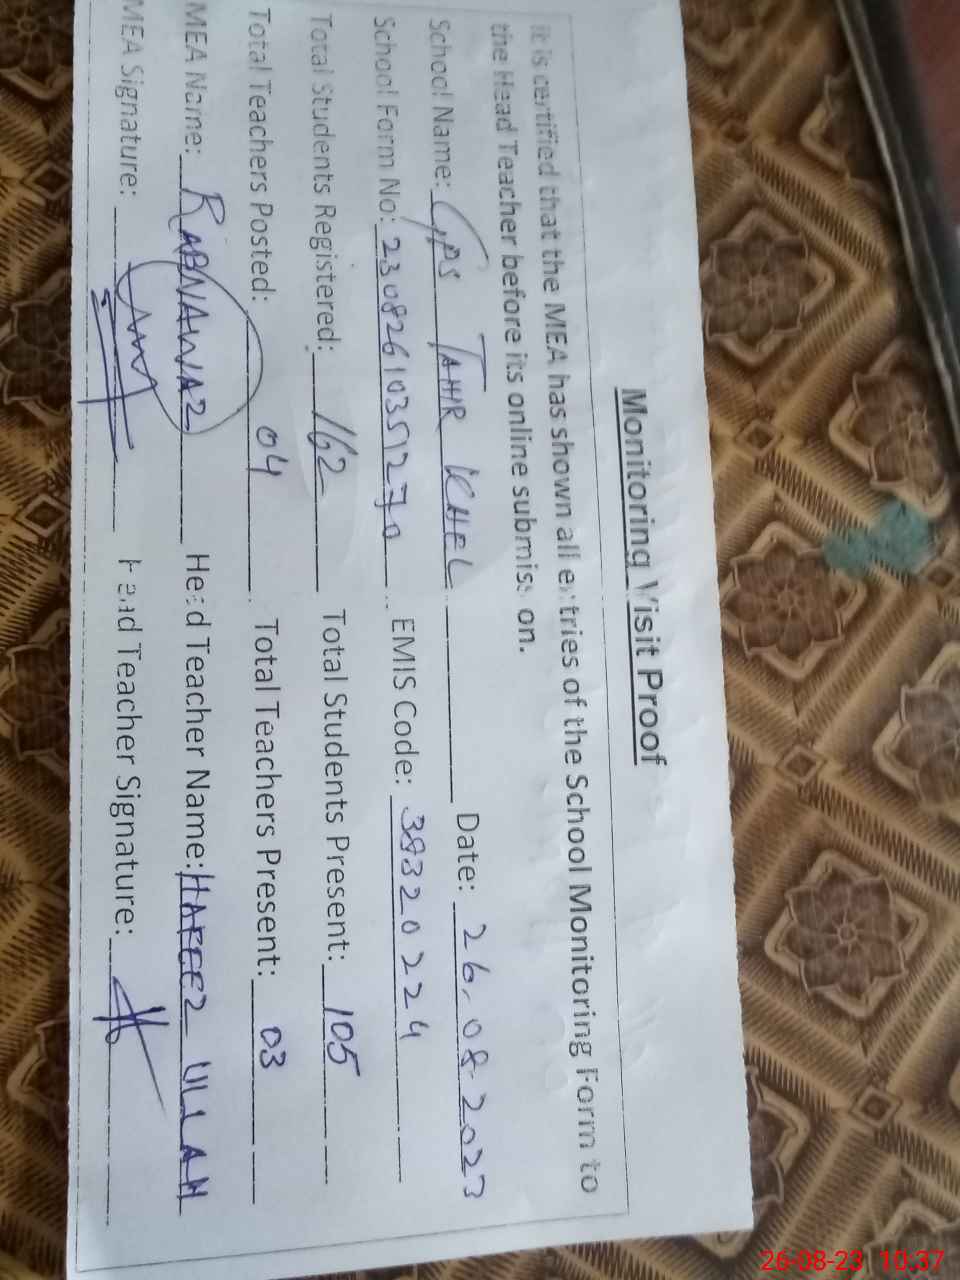 Monitoring Visit Proof
It is certified that the MEA has shown all entries of the School Monitoring Form to
the Head Teacher before its online submission.
School Name: GPS TAHIR KHEL Date: 26.08.2023
School Form No: 23082610351270 EMIS Code: 38320224
Total Students Registered: 162 Total Students Present: 105
Total Teachers Posted: 04 Total Teachers Present: 03
MEA Name: RABNAWAZ Head Teacher Name: HAFEEZ ULLAH
MEA Signature: Head Teacher Signature:
26-08-23 10:37